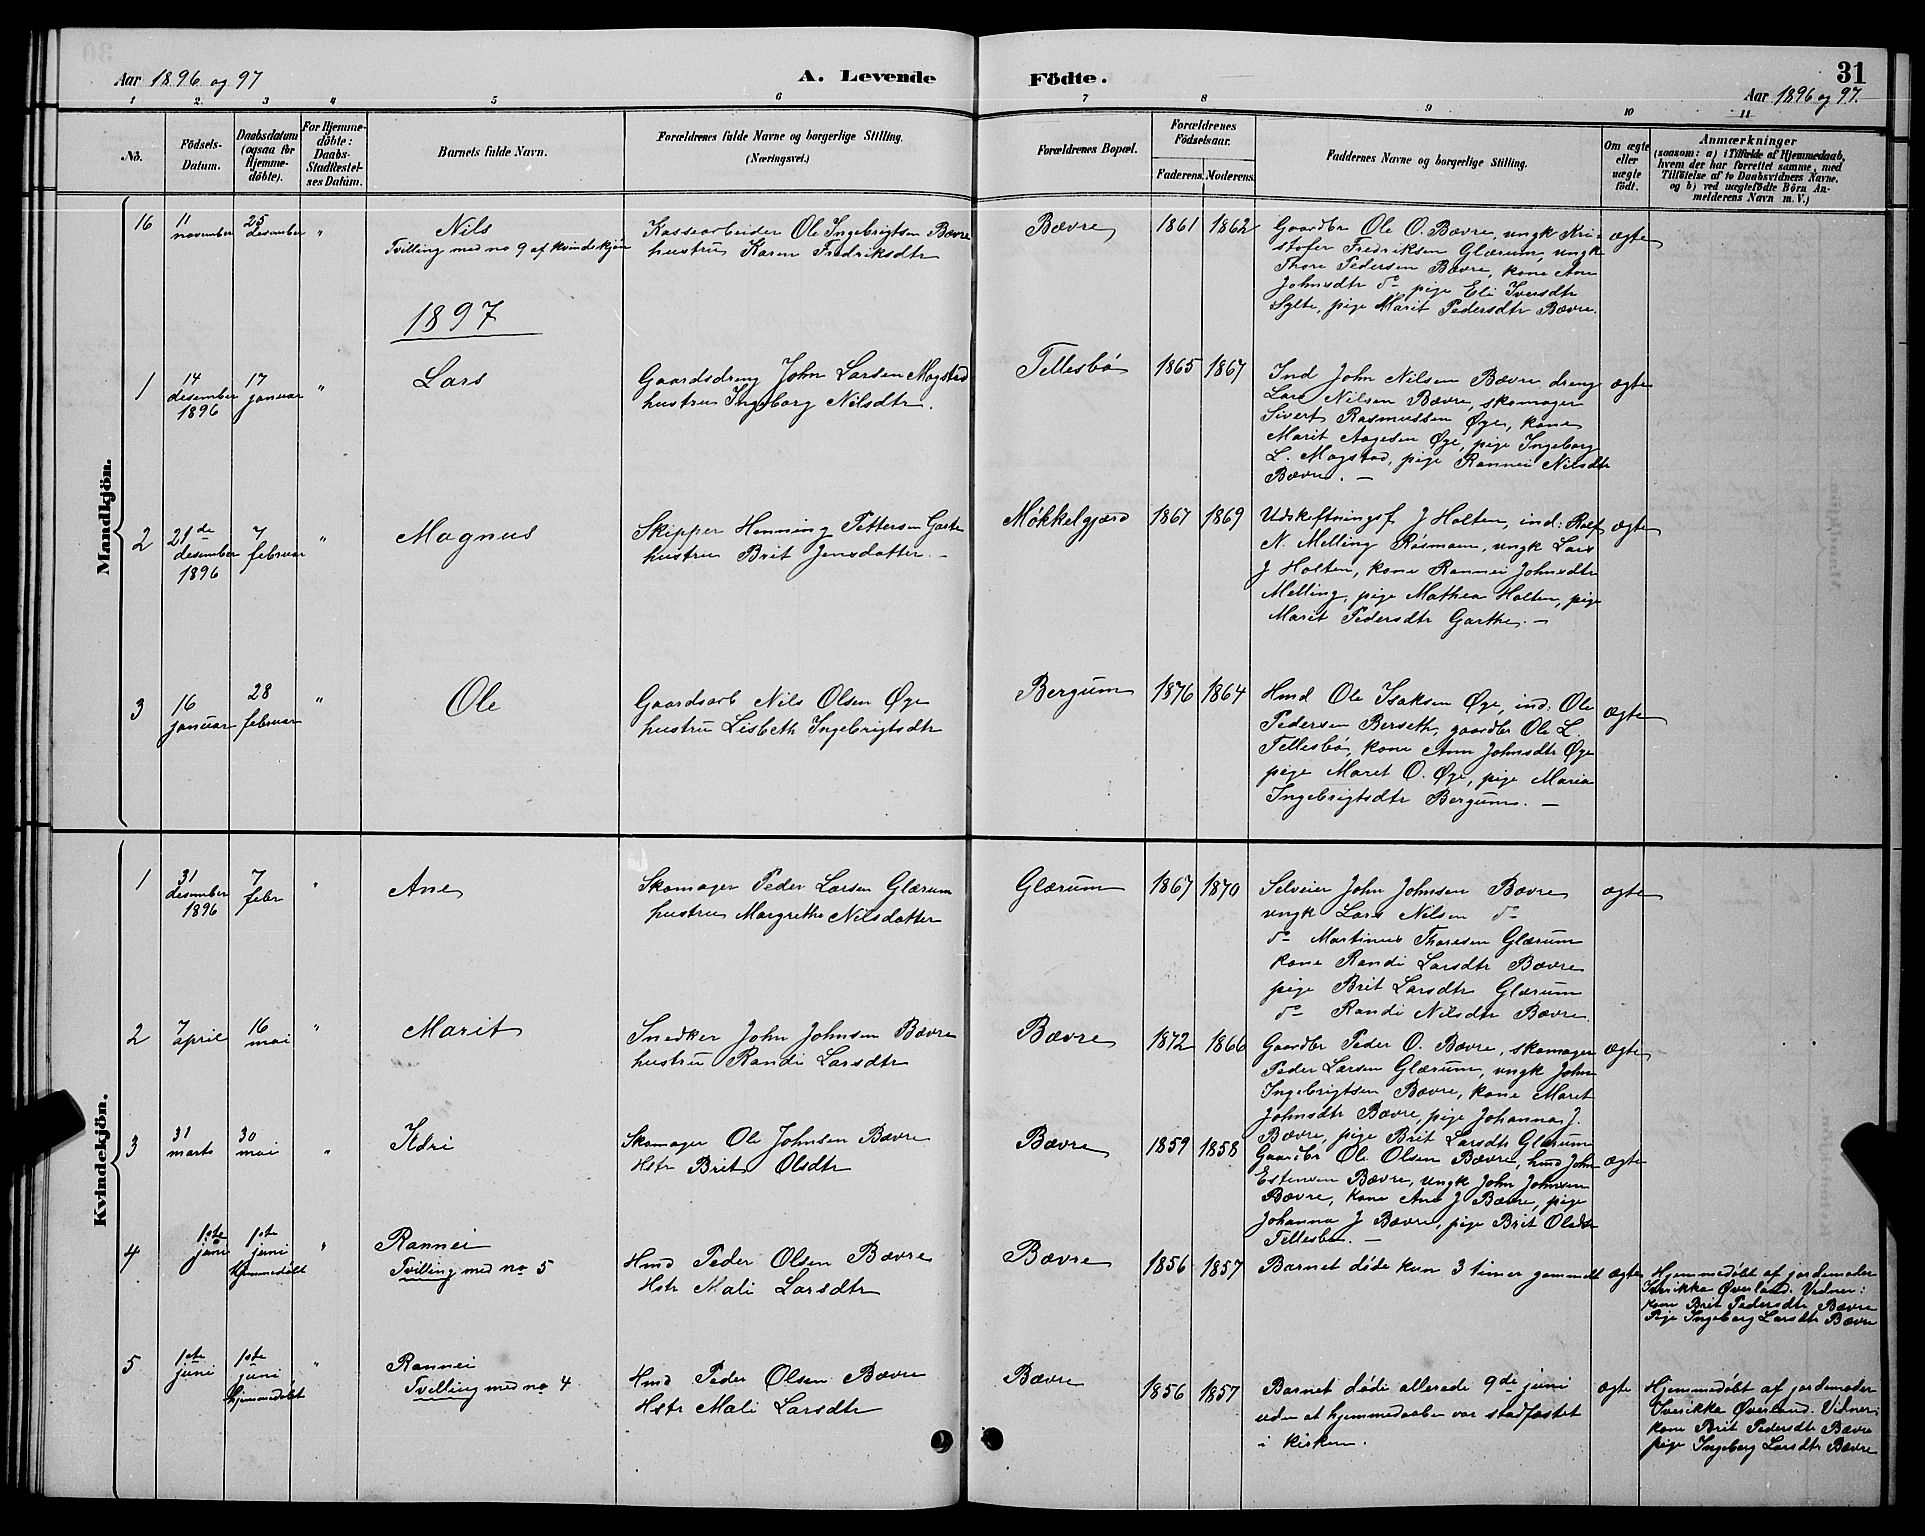 Aar 1896 og 97
A. Levende
Födte.
31
Aar 1896 og 97.
1 2. 3 4 5 6 7 8 9 10 11
No.
Födsels-
Datum.
Daabsdatum
(ogsaa for
Hjemme-
döbte).
For Hjemme-
döbte:
Daabs-
Stadfæstel-
ses Datum.
Barnets fulde Navn.
Forældrenes fulde Navne og borgerlige Stilling.
(Næringsvei.)
Forældrenes Bopæl.
Forældrenes
Födselsaar.
Faderens. Moderens.
Faddernes Navne og borgerlige Stilling.
Om ægte
eller
uægte
födt.
Anmærkninger
(saasom: a) i Tilfælde af Hjemmedaab,
hvem der har forrettet samme, med
Tilföielse af to Daabsvidners Navne.
og b) ved uægtefödte Börn An-
melderens Navn m. V.)
Mandkjön.
16
11
november
25
desember
"
Nils
Tvilling med no 9 af kvindekjön
Kassearbeider Ole Ingebrigtsen Bævre
hustru Karen Fredriksdtr
Bævre
1861
1862
Gaardbr Ole O. Bævre, ungk Kri-
stofer Fredriksen Glærum, ungk
Thore Pedersen Bævre, kone Ane
Johnsdtr do, pige Eli Iversdtr
Sylte, pige Marit Pedersdtr Bævre.
ægte
1897
1
14
desember
1896
17
januar
"
Lars
Gaardsdreng John Larsen Mogstad
hustru Ingeborg Nilsdtr.
Tellesbø
1865
1867
Ind John Nilsen Bævre, dreng
Lars Nilsen Bævre, skomager
Sivert Rasmussen Øye, kone
Marit Aagesen Øye, pige Ingeborg
L. Mogstad, pige Rannei Nilsdtr
Bævre. —
ægte
2
21de
desember
1896
7
februar
"
Magnus
Skipper Henning Pettersen Garte
hustru Brit Jensdatter. —
Møkkelgjærd
1867
1869
Udskiftningsf. J Holten, ind: Rolf
N. Melling Røsmoen, ungk Lars
J Holten, kone Rannei Johnsdtr
Melling, pige Mathea Holten, pige
Marit Pedersdtr Garthe. —
ægte
3
16
januar
28
februar
"
Ole
Gaardsarb Nils Olsen Øye
hustru Lisbeth Ingebrigtsdtr
Bergum
1876
1864
Hmd Ole Isaksen Øye, ind. Ole
Pedersen Berseth, gaardbr Ole L.
Tellesbø, kone Ann Johnsdtr Øye
pige Maret O. Øye, pige Maria
Ingebrigtsdtr Bergum. —
ægte
Kvindekjön.
1
31
desember
1896
7
febr
"
Ane
Skomager Peder Larsen Glærum
hustru Margrethe Nilsdatter
Glærum
1867
1870
Selveier John Johnsen Bævre
ungk Lars Nilsen do
do Martinus Thoresen Glærum
kone Randi Larsdtr Bævre
pige Brit Larsdtr Glærum
do Randi Nilsdtr Bævre.
ægte
2
7
april
16
mai
"
Marit
Snedker John Johnsen Bævre
hustru Randi Larsdtr
Bævre
1872
1866
Gaardbr Peder O. Bævre, skomager
Peder Larsen Glærum, ungk John
Ingebrigtsen Bævre, kone Maret
Johnsdtr Bævre, pige Johanna J.
Bævre, pige Brit Larsdtr Glærum
ægte
3
31
marts
30
mai
"
Ildri
Skomager Ole Johnsen Bævre
Hstr Brit Olsdtr
Bævre
1859
1858
Gaardbr Ole Olsen Bævre, hmd John
Estensen Bævre, ungk John Johnsen
Bævre, kone Ane J Bævre, pige
Johanna J Bævre, pige Brit Olsdtr
Tellesbø. —
ægte
4
1ste
juni
1ste
juni
hjemmedøbt
"
Rannei
Tvilling med no 5
Hmd Peder Olsen Bævre
Hstr Mali Larsdtr
Bævre
1856
1857
Barnet døde kun 3 timer gammelt
ægte
Hjemmedøbt af jordemoder
Øverland. Vidner:
kone Brit Pedersdtr Bævre
Pige Ingeborg Larsdtr Bævre
5
1ste
juni
1ste
juni
hjemmedøbt
"
Rannei
Tvilling med no 4
Hmd Peder Olsen Bævre
Hstr Mali Larsdtr
Bævre
1856
1857
Barnet døde allerede 9de juni
uden at hjemmedaaben var stadfæstet
i kirken.
ægte
Hjemmedøbt af jordemoder
Øverland. Vidner:
kone Brit Pedersdtr Bævre
pige Ingeborg Larsdtr Bævre